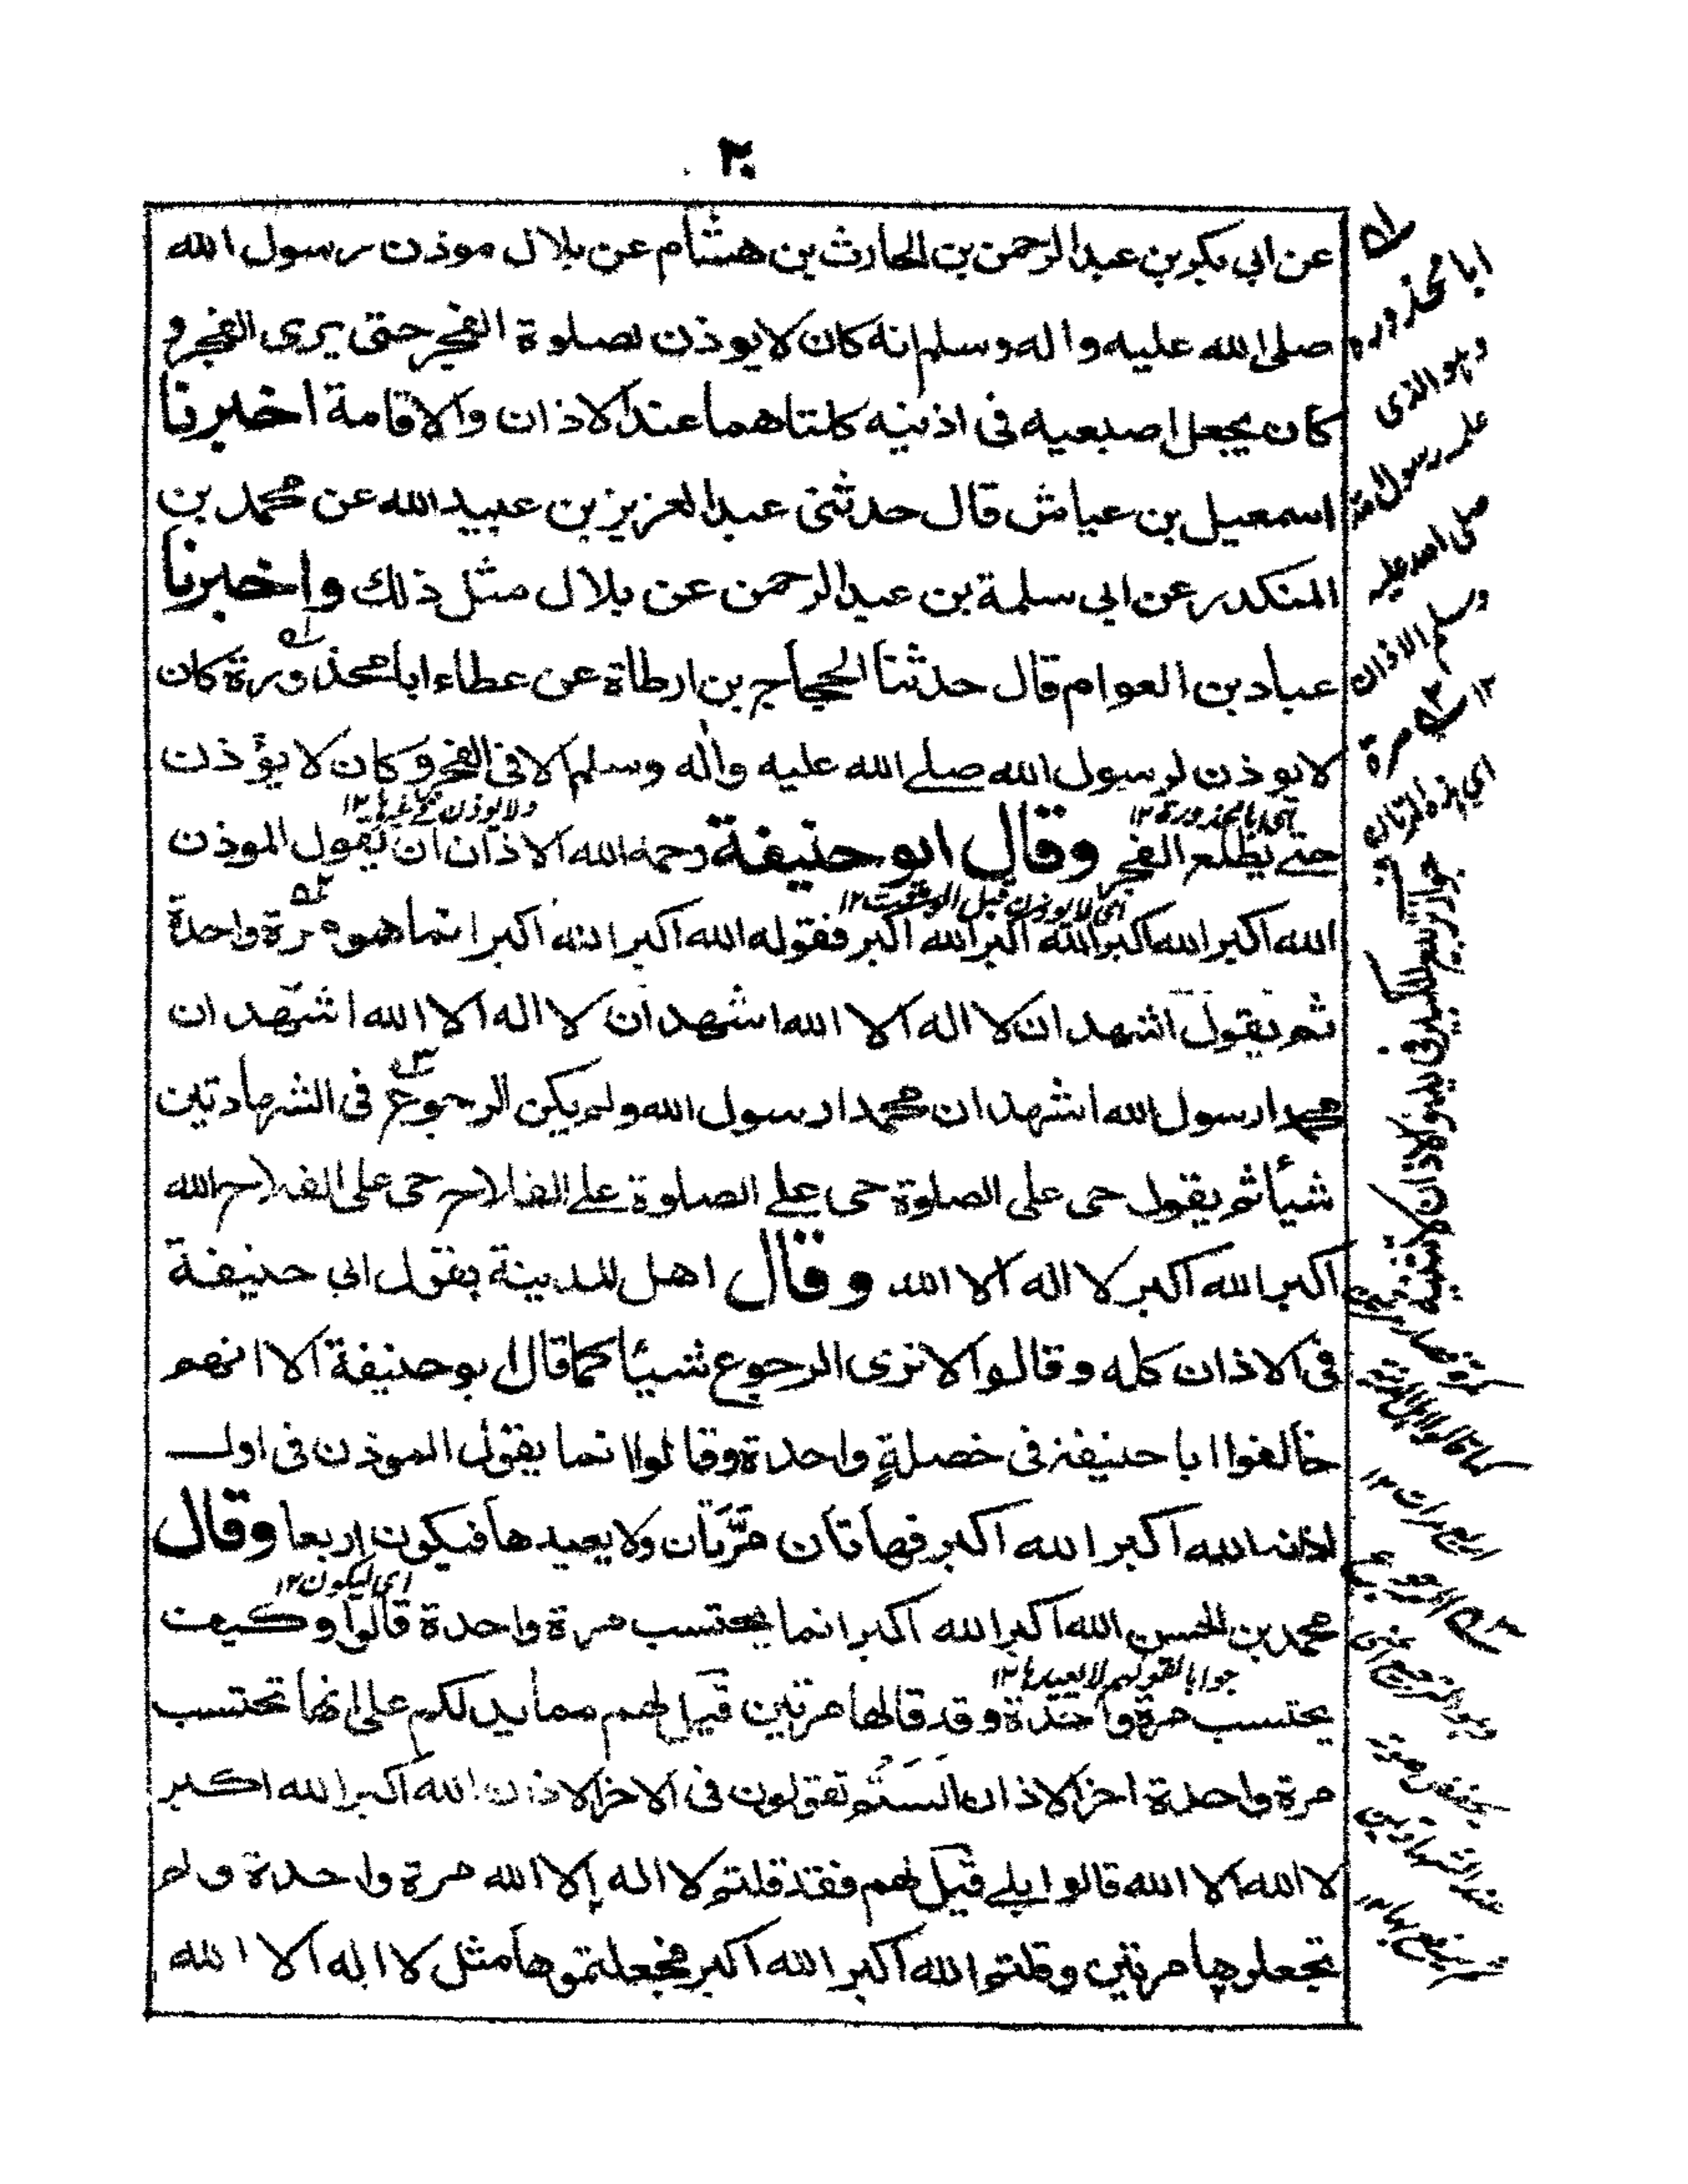 ٢٠
عن ابي بكر بن عبد الرحمن بن الحارث بن هشام عن بلال موذن رسول الله
صلى الله عليه واله وسلم انه كان لا يوذن لصلوة الفجر حتى يرى الفجر و
كان يجعل اصبعيه فى اذنيه كلتاهما عند الاذان والاقامة اخبرنا
اسمعيل بن عياش قال حدثنى عبد العزيز بن عبيد الله عن محمد بن
المنكدر عن ابي سلمة بن عبد الرحمن عن بلال مثل ذلك واخبرنا
عباد بن العوام قال حدثنا الحجاج بن ارطاة عن عطاء ابا محذورة كان
لا يوذن لرسول الله صلے الله عليه واله وسلم الا فى الفجر وكان لا يؤذن
حتے يطلع الفجر وقال ابو حنيفة رحمه الله الاذان ان يقول الموذن
الله اكبر الله اكبر الله اكبر الله اكبر فقوله الله اكبر الله اكبر انما هو مرة واحدة
ثم يقول اشهد ان لا اله الا الله اشهد ان لا اله الا الله اشهد ان
محمدا رسول الله اشهد ان محمدا رسول الله ولم يكن الرجوع فى الشهادتين
شيأ ثم يقول حى على الصلوة حى علے الصلوة علے الفلاح حى على الفلاح الله
اكبر الله اكبر لا اله الا الله وقال اهل المدينة بقول ابي حنيفة
فى الاذان كله وقالوا لا نرى الرجوع شيئا كما قال ابو حنيفة الا انهم
خالفوا ابا حنيفة فى خصلةٍ واحدة وقالوا انما يقول الموذن فى اول
اذانه الله اكبر الله اكبر فهاتان مرَّتان ولا يعيدها فيكون اربعا وقال
محمد بن الحسن الله اكبر الله اكبر انما يحتسب مرة واحدة قالوا وكيف
يحتسب مرة واحدة وقد قالها مرتين قيل لهم مما يدلكم على انها تحتسب
مرة واحدة اخر الاذان الستم تقولون فى الاخر الاذان الله اكبر الله اكبر
لا الله الا الله قالوا بلے قيل لهم فقد قلتم لا اله إلا الله مرة واحدة ولم
تجعلوها مرتين وقلتم الله اكبر الله اكبر فجعلتموها مثل لا اله الا الله
ولا يوذن
اى لا يوذن قبل الوقت ١٢
اى ليكون ١٢
جوابا لقولهم لا يعيدها ١٢
ابا محذورة
وهو الذى
علم رسول الله
صلى الله عليه
وسلم الاذان
١٢
مرة
اى هذه المرتان